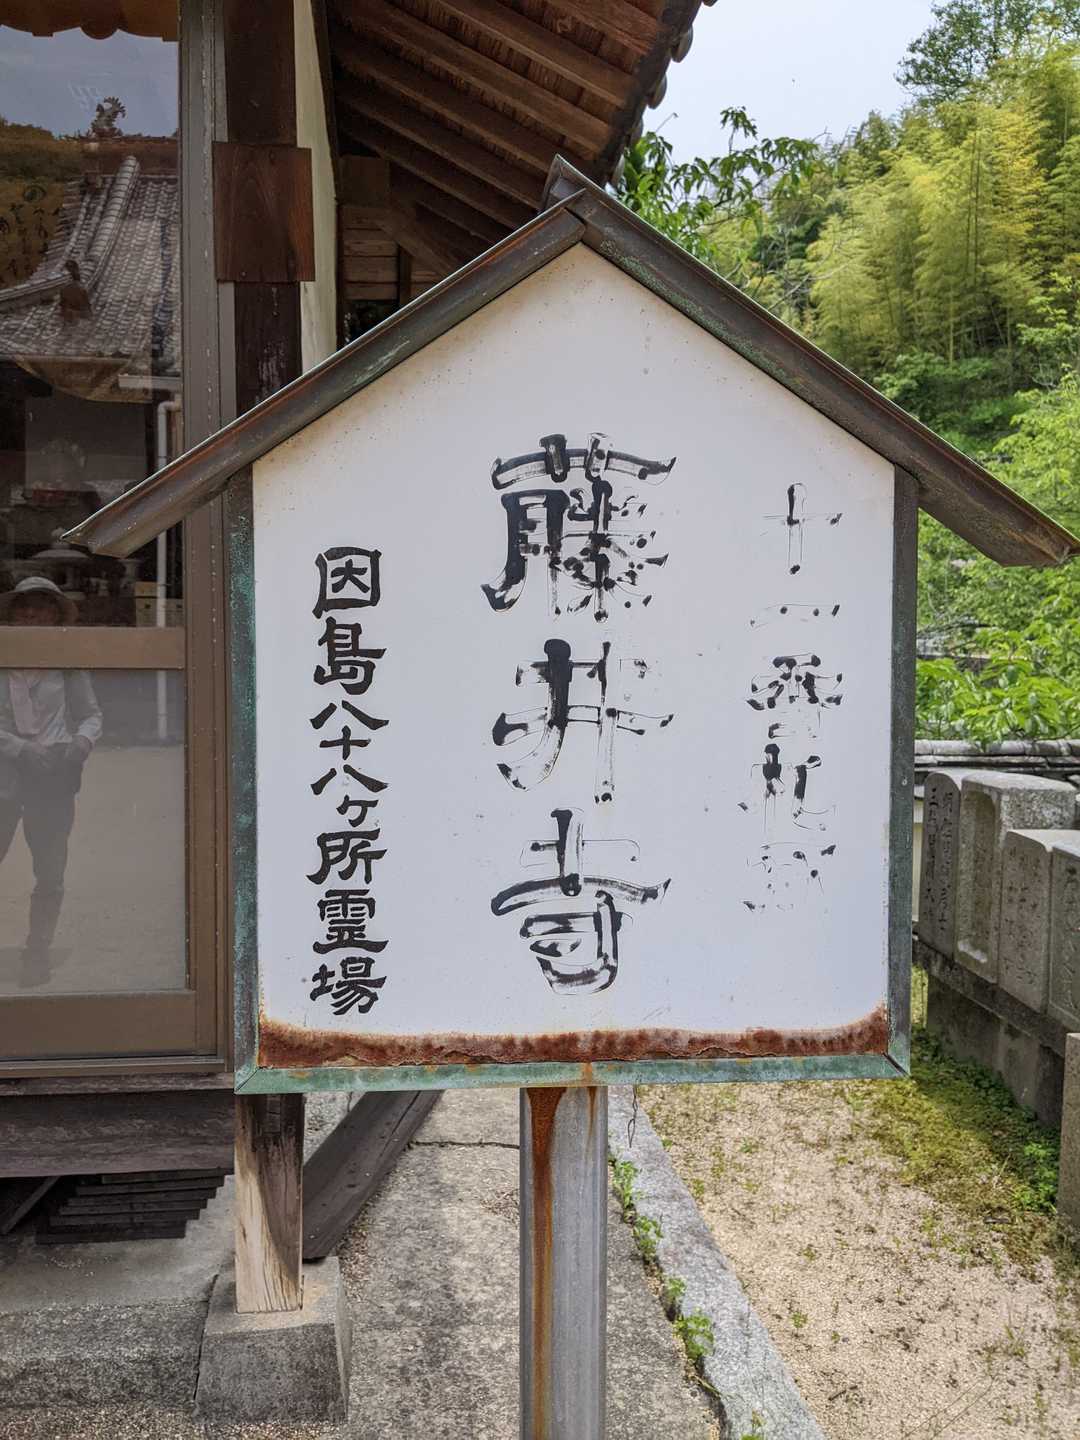 十一番札所
藤井寺
因島八十八ヶ所霊場